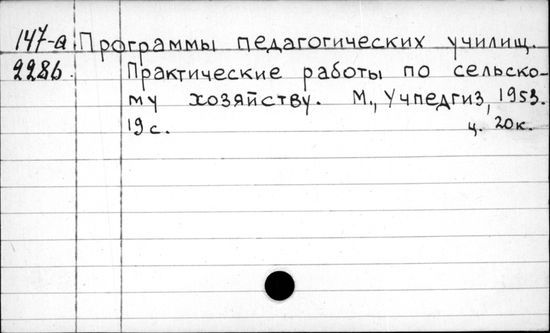 147-а Программы педагогических училищ.
2286. Практические работы по сельско-
му хозяйству. М., Учпедгиз, 1953.
19 с. ц. 20к.